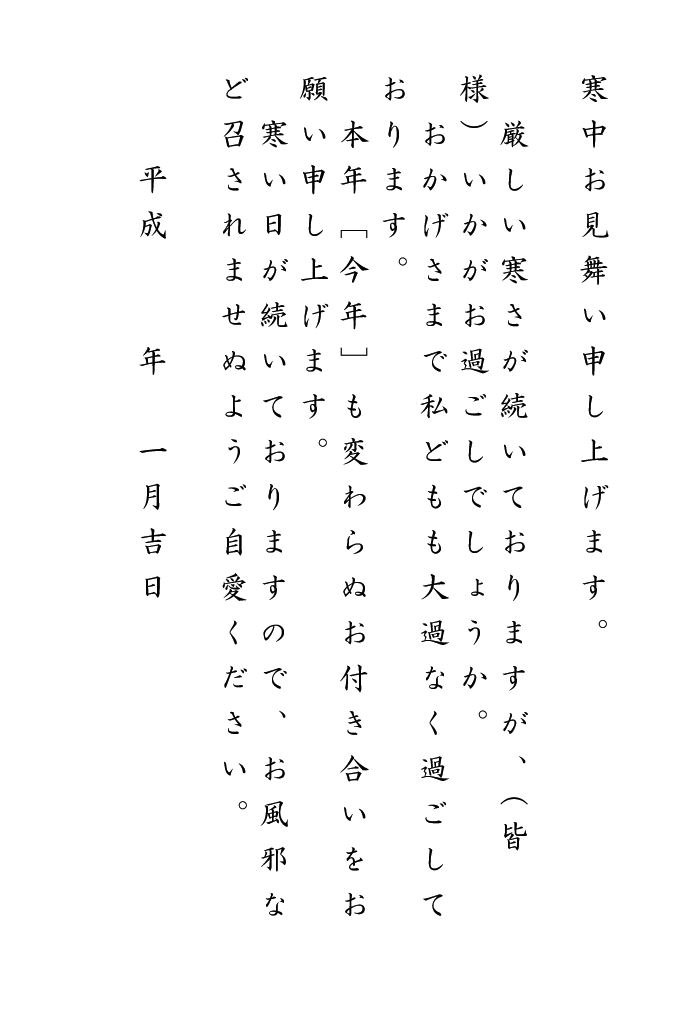 寒中お見舞い申し上げます。
厳しい寒さが続いておりますが、（皆
様）いかがお過ごしでしょうか。
おかげさまで私どもも大過なく過ごして
おります。
本年［今年］も変わらぬお付き合いをお
願い申し上げます。
寒い日が続いておりますので、お風邪な
ど召されませぬようご自愛ください。
平成　　年　一月吉日